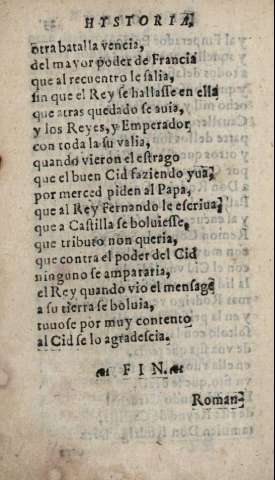 HYSTORIA
otra batalla vencia,
del mayor poder de Francia
que al recuentro le salia,
sin que el Rey se hallasse en ella
que atras quedado se auia,
y los Reyes, y Emperador
con toda la su valia,
quando vieron el estrago
que el buen Cid faziendo yua,
por merced piden al Papa,
que al Rey Fernando le escriua,
que a Castilla se boluiesse,
que tributo non queria,
que contra el poder del Cid
ninguno se ampararia,
el Rey quando vio el mensage
a su tierra se boluia,
tuuose por muy contento
al Cid se lo agradescia.
FIN.
Roman-